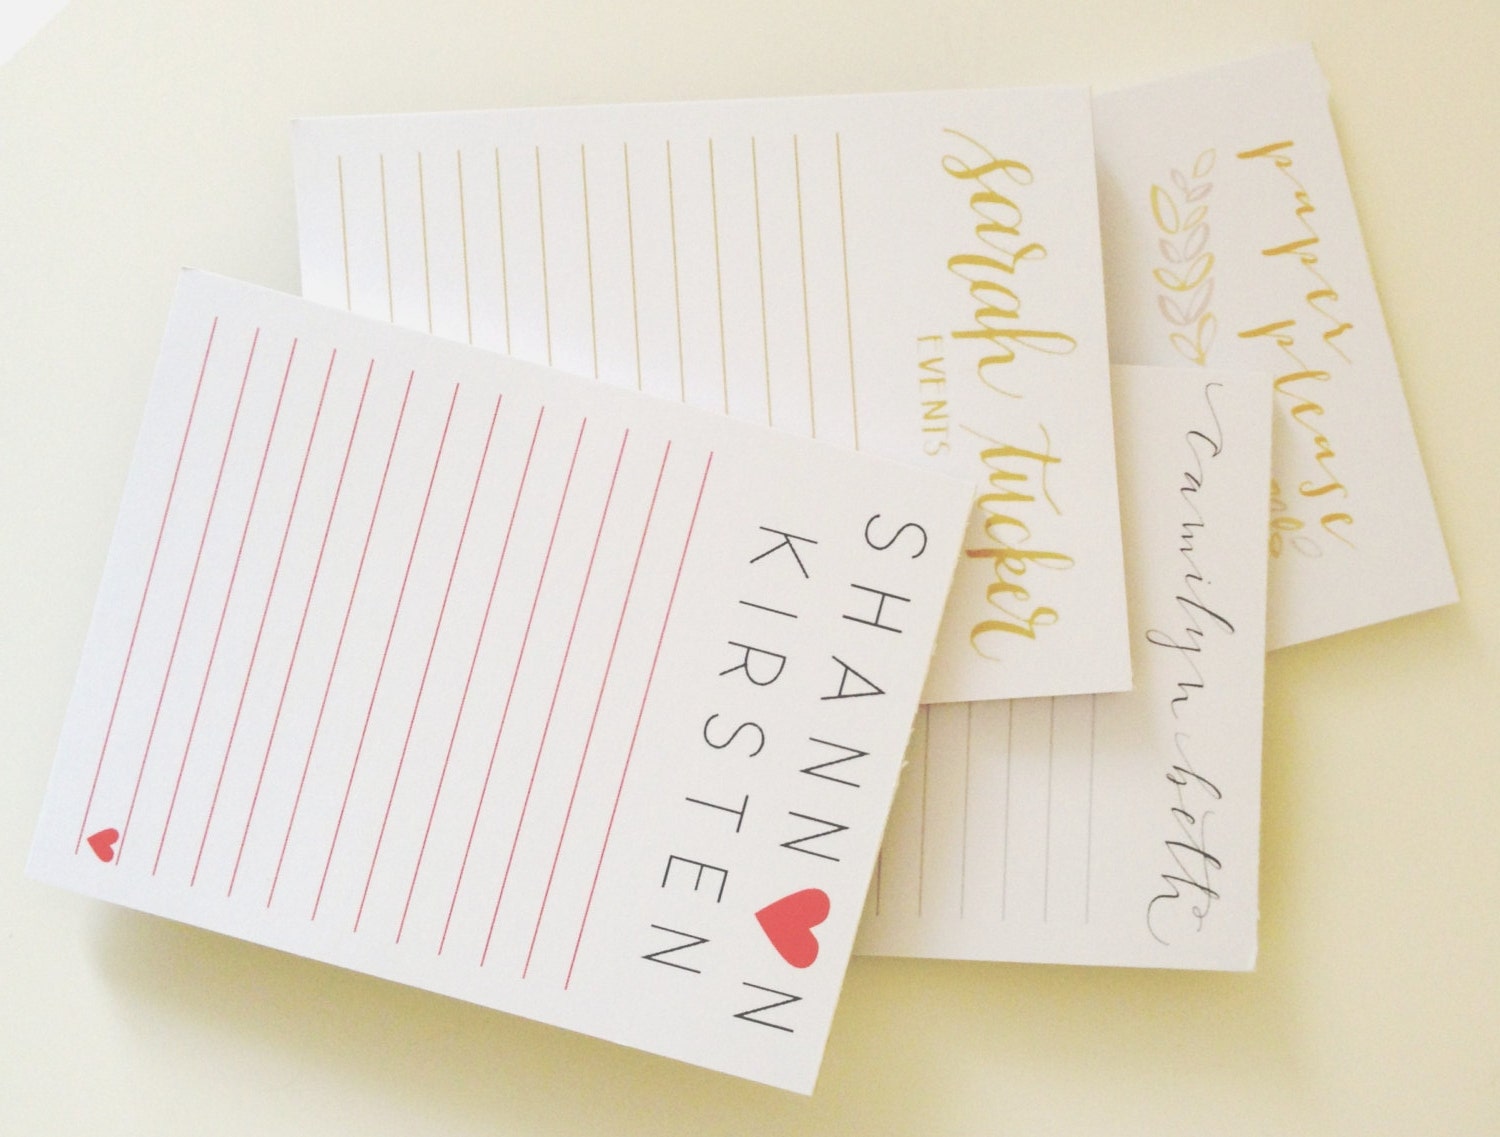 SHANN♥N
KIRSTEN
sarah tucker
EVENTS
camilyn beth
paper please